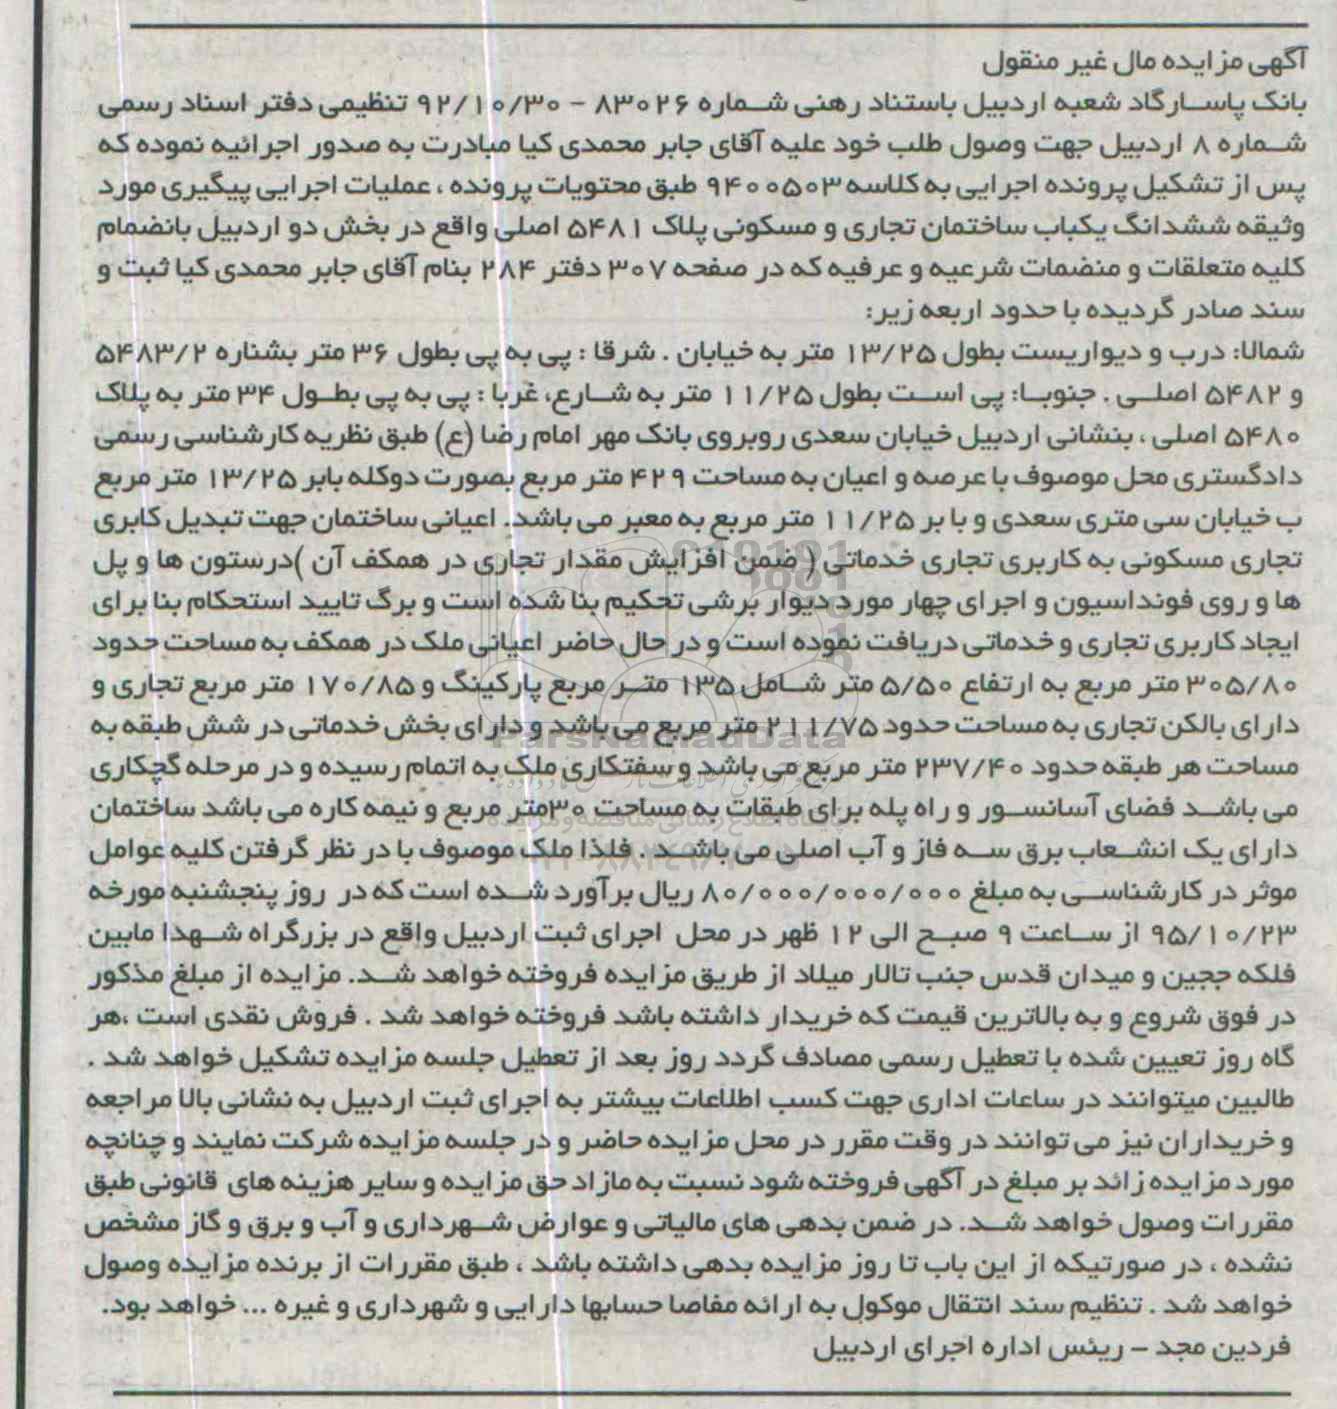 آگهی مزایده مال غیر منقول
بانک پاسارگاد شعبه اردبیل باستناد رهنی شماره ۸۳۰۲۶ - ۹۲/۱۰/۳۰ تنظیمی دفتر اسناد رسمی
شماره ۸ اردبیل جهت وصول طلب خود علیه آقای جابر محمدی کیا مبادرت به صدور اجرائیه نموده که
پس از تشکیل پرونده اجرایی به کلاسه ۹۴۰۰۵۰۳ طبق محتویات پرونده ، عملیات اجرایی پیگیری مورد
وثیقه ششدانگ یکباب ساختمان تجاری و مسکونی پلاک ۵۴۸۱ اصلی واقع در بخش دو اردبیل بانضمام
کلیه متعلقات و منضمات شرعیه و عرفیه که در صفحه ۳۰۷ دفتر ۲۸۴ بنام آقای جابر محمدی کیا ثبت و
سند صادر گردیده با حدود اربعه زیر:
شمالا: درب و دیواریست بطول ۱۳/۲۵ متر به خیابان . شرقا : پی به پی بطول ۳۶ متر بشناره ۵۴۸۳/۲
و ۵۴۸۲ اصلی . جنوبا: پی است بطول ۱۱/۲۵ متر به شارع، غربا : پی به پی بطول ۳۴ متر به پلاک
۵۴۸۰ اصلی ، بنشانی اردبیل خیابان سعدی روبروی بانک مهر امام رضا (ع) طبق نظریه کارشناسی رسمی
دادگستری محل موصوف با عرصه و اعیان به مساحت ۴۲۹ متر مربع بصورت دوکله بابر ۱۳/۲۵ متر مربع
ب خیابان سی متری سعدی و با بر ۱۱/۲۵ متر مربع به معبر می باشد. اعیانی ساختمان جهت تبدیل کابری
تجاری مسکونی به کاربری تجاری خدماتی ( ضمن افزایش مقدار تجاری در همکف آن )درستون ها و پل
ها و روی فونداسیون و اجرای چهار مورد دیوار برشی تحکیم بنا شده است و برگ تایید استحکام بنا برای
ایجاد کاربری تجاری و خدماتی دریافت نموده است و در حال حاضر اعیانی ملک در همکف به مساحت حدود
۳۰۵/۸۰ متر مربع به ارتفاع ۵/۵۰ متر شامل ۱۳۵ متر مربع پارکینگ و ۱۷۰/۸۵ متر مربع تجاری و
دارای بالکن تجاری به مساحت حدود ۲۱۱/۷۵ متر مربع می باشد و دارای بخش خدماتی در شش طبقه به
مساحت هر طبقه حدود ۲۳۷/۴۰ متر مربع می باشد و سفتکاری ملک به اتمام رسیده و در مرحله گچکاری
می باشد فضای آسانسور و راه پله برای طبقات به مساحت ۳۰متر مربع و نیمه کاره می باشد ساختمان
دارای یک انشعاب برق سه فاز و آب اصلی می باشد . فلذا ملک موصوف با در نظر گرفتن کلیه عوامل
موثر در کارشناسی به مبلغ ۸۰/۰۰۰/۰۰۰/۰۰۰ ریال برآورد شده است که در روز پنجشنبه مورخه
۹۵/۱۰/۲۳ از ساعت ۹ صبح الی ۱۲ ظهر در محل اجرای ثبت اردبیل واقع در بزرگراه شهدا مابین
فلکه ججین و میدان قدس جنب تالار میلاد از طریق مزایده فروخته خواهد شد. مزایده از مبلغ مذکور
در فوق شروع و به بالاترین قیمت که خریدار داشته باشد فروخته خواهد شد . فروش نقدی است ،هر
گاه روز تعیین شده با تعطیل رسمی مصادف گردد روز بعد از تعطیل جلسه مزایده تشکیل خواهد شد .
طالبین میتوانند در ساعات اداری جهت کسب اطلاعات بیشتر به اجرای ثبت اردبیل به نشانی بالا مراجعه
و خریداران نیز می توانند در وقت مقرر در محل مزایده حاضر و در جلسه مزایده شرکت نمایند و چنانچه
مورد مزایده زائد بر مبلغ در آگهی فروخته شود نسبت به مازاد حق مزایده و سایر هزینه های قانونی طبق
مقررات وصول خواهد شد. در ضمن بدهی های مالیاتی و عوارض شهرداری و آب و برق و گاز مشخص
نشده ، در صورتیکه از این باب تا روز مزایده بدهی داشته باشد ، طبق مقررات از برنده مزایده وصول
خواهد شد . تنظیم سند انتقال موکول به ارائه مفاصا حسابها دارایی و شهرداری و غیره ... خواهد بود.
فردین مجد - رینس اداره اجرای اردبیل
ParsNamadData